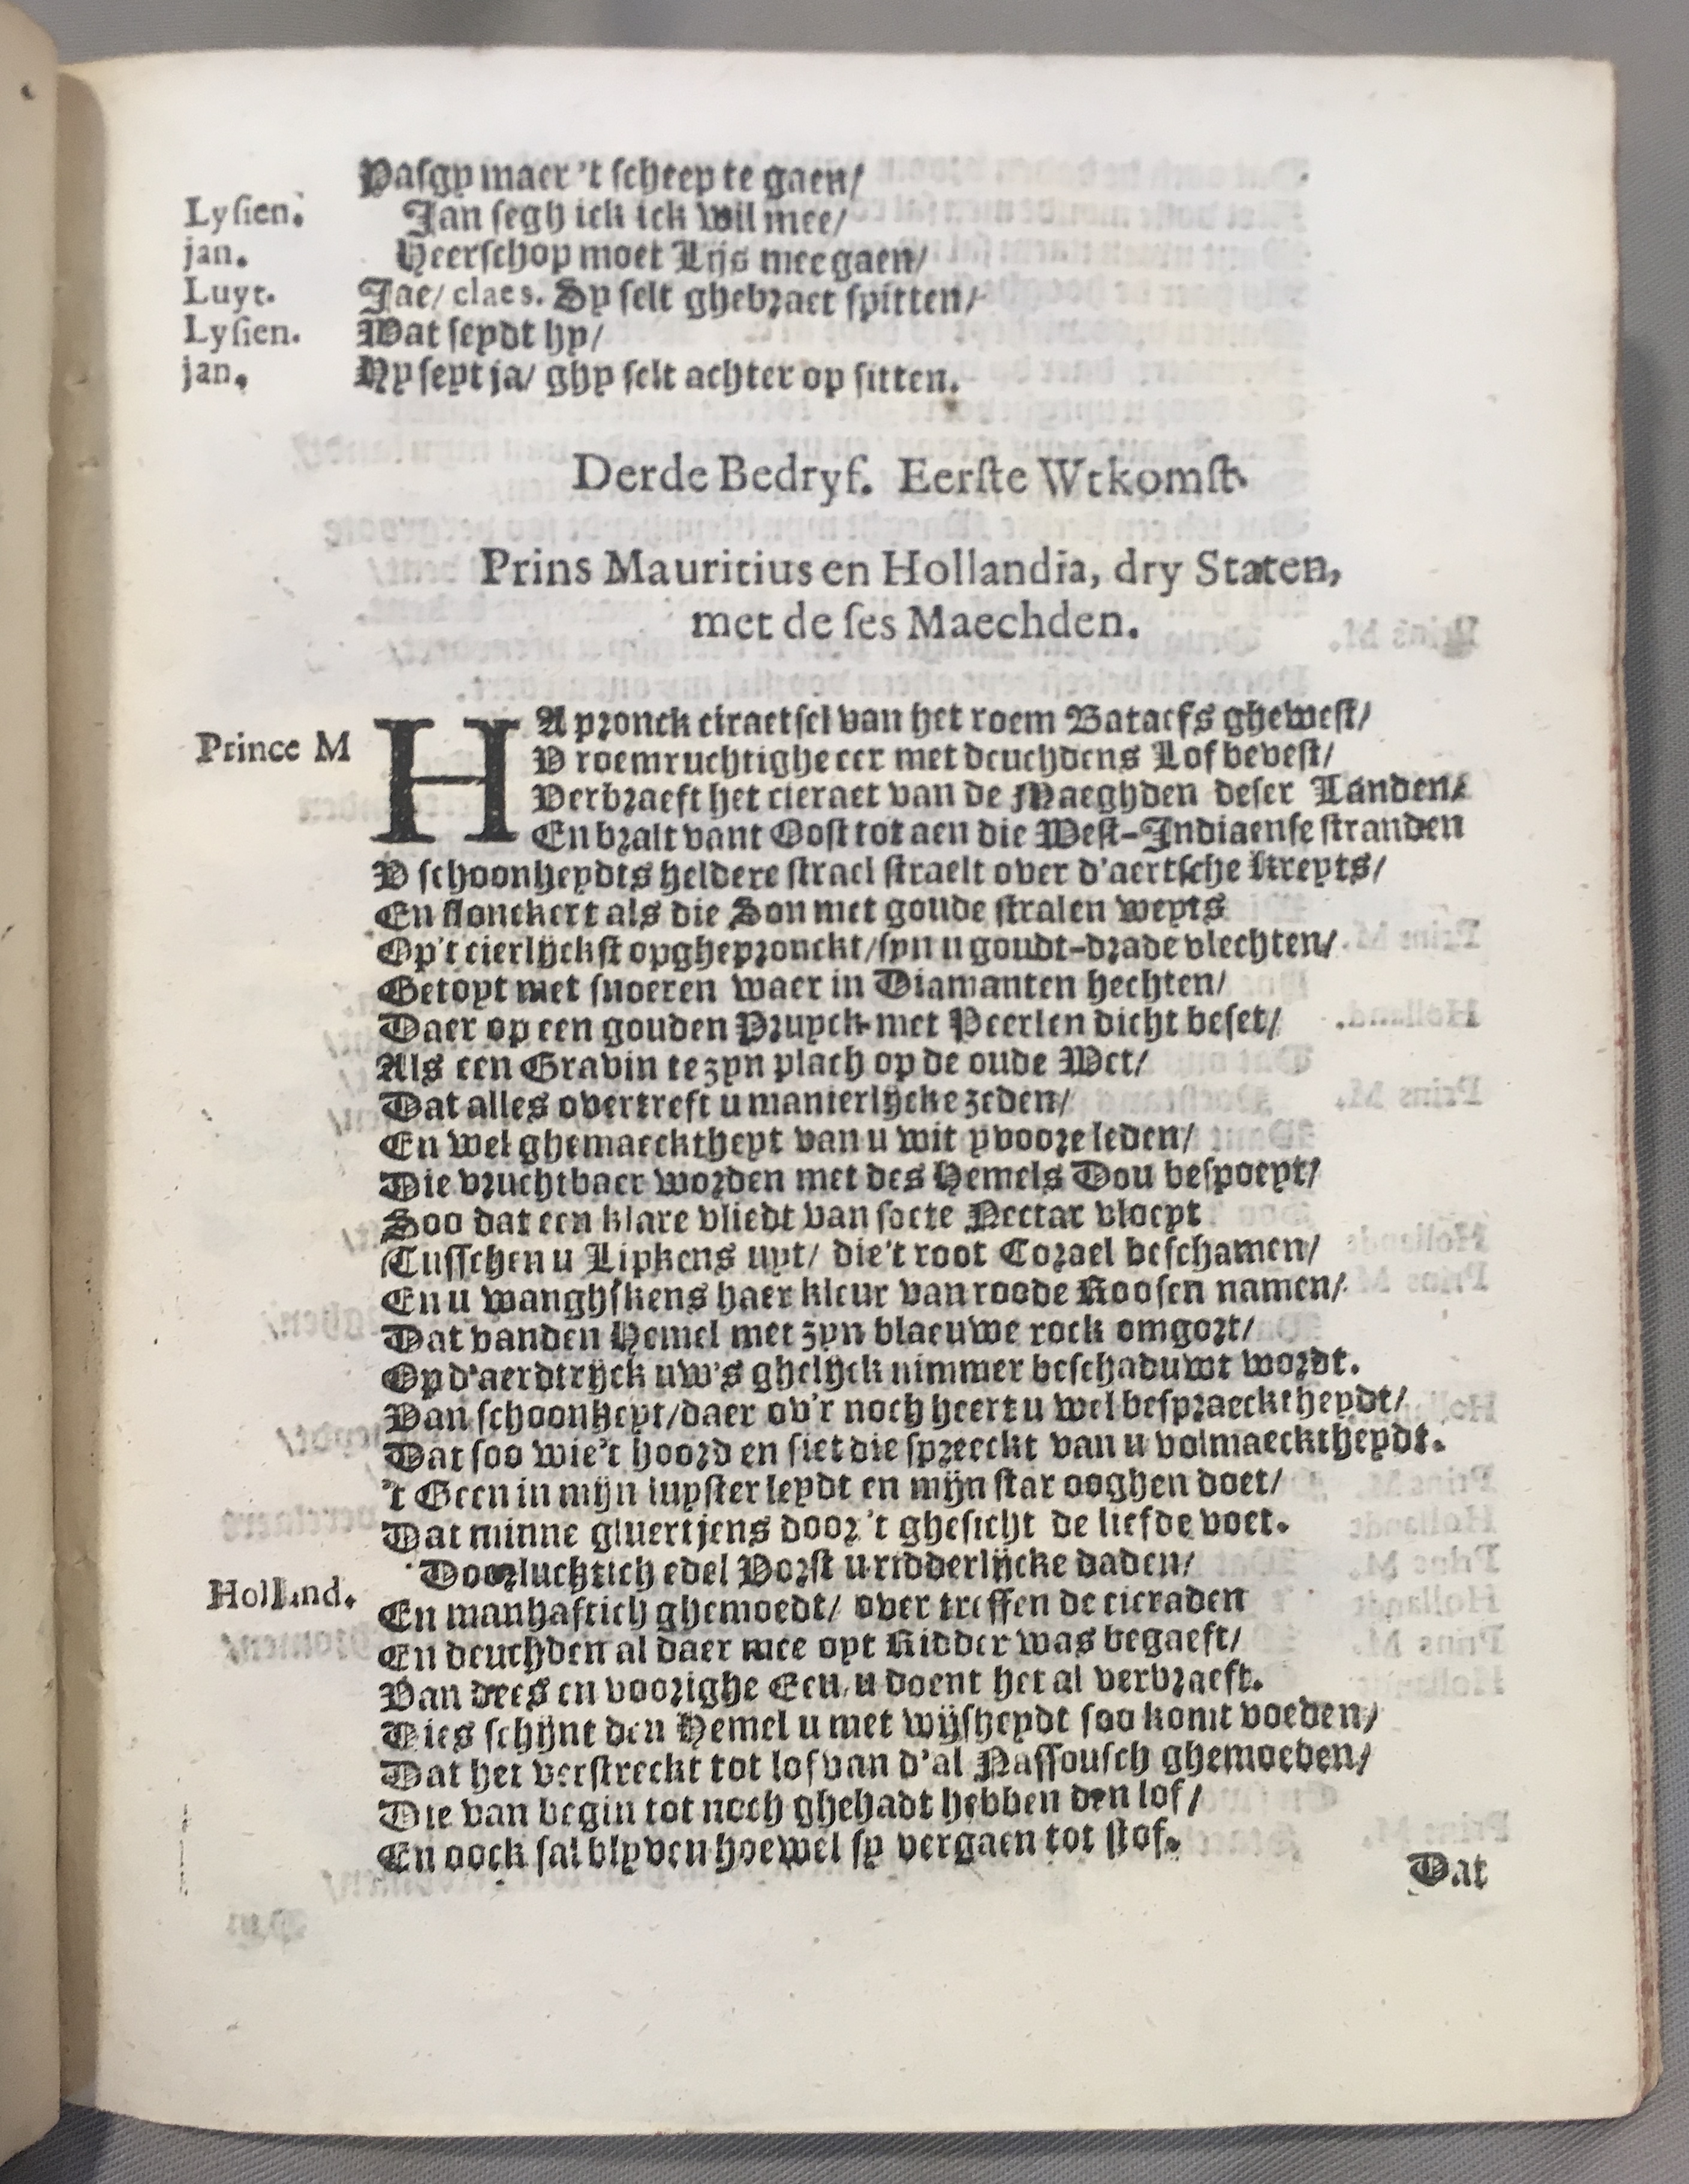 Pasgy maer 't scheep te gaen/
Lysien. Jan segh ick ick wil mee/
jan. Heerschop moet Lijs mee gaen/
Luyt. Jae/ claes. Sy selt ghebraet spitten/
Lysien. Wat seydt hy/
jan. Hy seyt ja/ ghy selt achter op sitten.
Derde Bedryf. Eerste Wtkomst.
Prins Mauritius en Hollandia, dry Staten,
met de ses Maechden.
Prince M HA pronck ciraetsel van het roem Bataefs ghewest/
V roemruchtighe eer met deuchdens Lof bevest/
Verbraeft het cieraet van de Maeghden deser Landen/
En bralt vant Oost tot aen die West-Indiaense stranden
V schoonheydts heldere strael straelt over d'aertsche kreyts/
En flonckert als die Son met goude stralen weyts
Op't cierlijckst opghepronckt/ syn u goudt-drade vlechten/
Getoyt met snoeren waer in Diamanten hechten/
Daer op een gouden Pruyck met Peerlen dicht beset/
Als een Gravin te zyn plach op de oude Wet/
Dat alles overtreft u manierlijcke zeden/
En wel ghemaecktheyt van u wit yvoore leden/
Die vruchtbaer worden met des Hemels Dou bespoeyt/
Soo dat een klare vliedt van soete Nectar vloeyt
Tusschen u Lipkens uyt/ die't root Corael beschamen/
En u wanghskens haer kleur van roode Roosen namen/
Dat vanden Hemel met zyn blaeuwe rock omgort/
Op d'aerdtrijck uw's ghelijck nimmer beschaduwt wordt.
Van schoonheyt/ daer ov'r noch heert u wel bespraecktheydt/
Dat soo wie't hoord en siet die spreeckt van u volmaecktheydt.
't Geen in mijn luyster leydt en mijn star ooghen doet/
Dat minne gluertjens door 't ghesicht de liefde voet.
Holland. Doorluchtich edel Vorst u ridderlijcke daden/
En manhaftich ghemoedt/ over treffen de cieraden
En deuchden al daer mee oyt Ridder was begaeft/
Van dees en voorighe Eeu u doent het al verbraeft.
Dies schijnt den Hemel u met wijsheydt soo komt voeden/
Dat het verstreckt tot lof van d'al Nassousch ghemoeden/
Die van begin tot noch ghehadt hebben den lof/
En oock sal blyven hoewel sy vergaen tot stof.
Dat